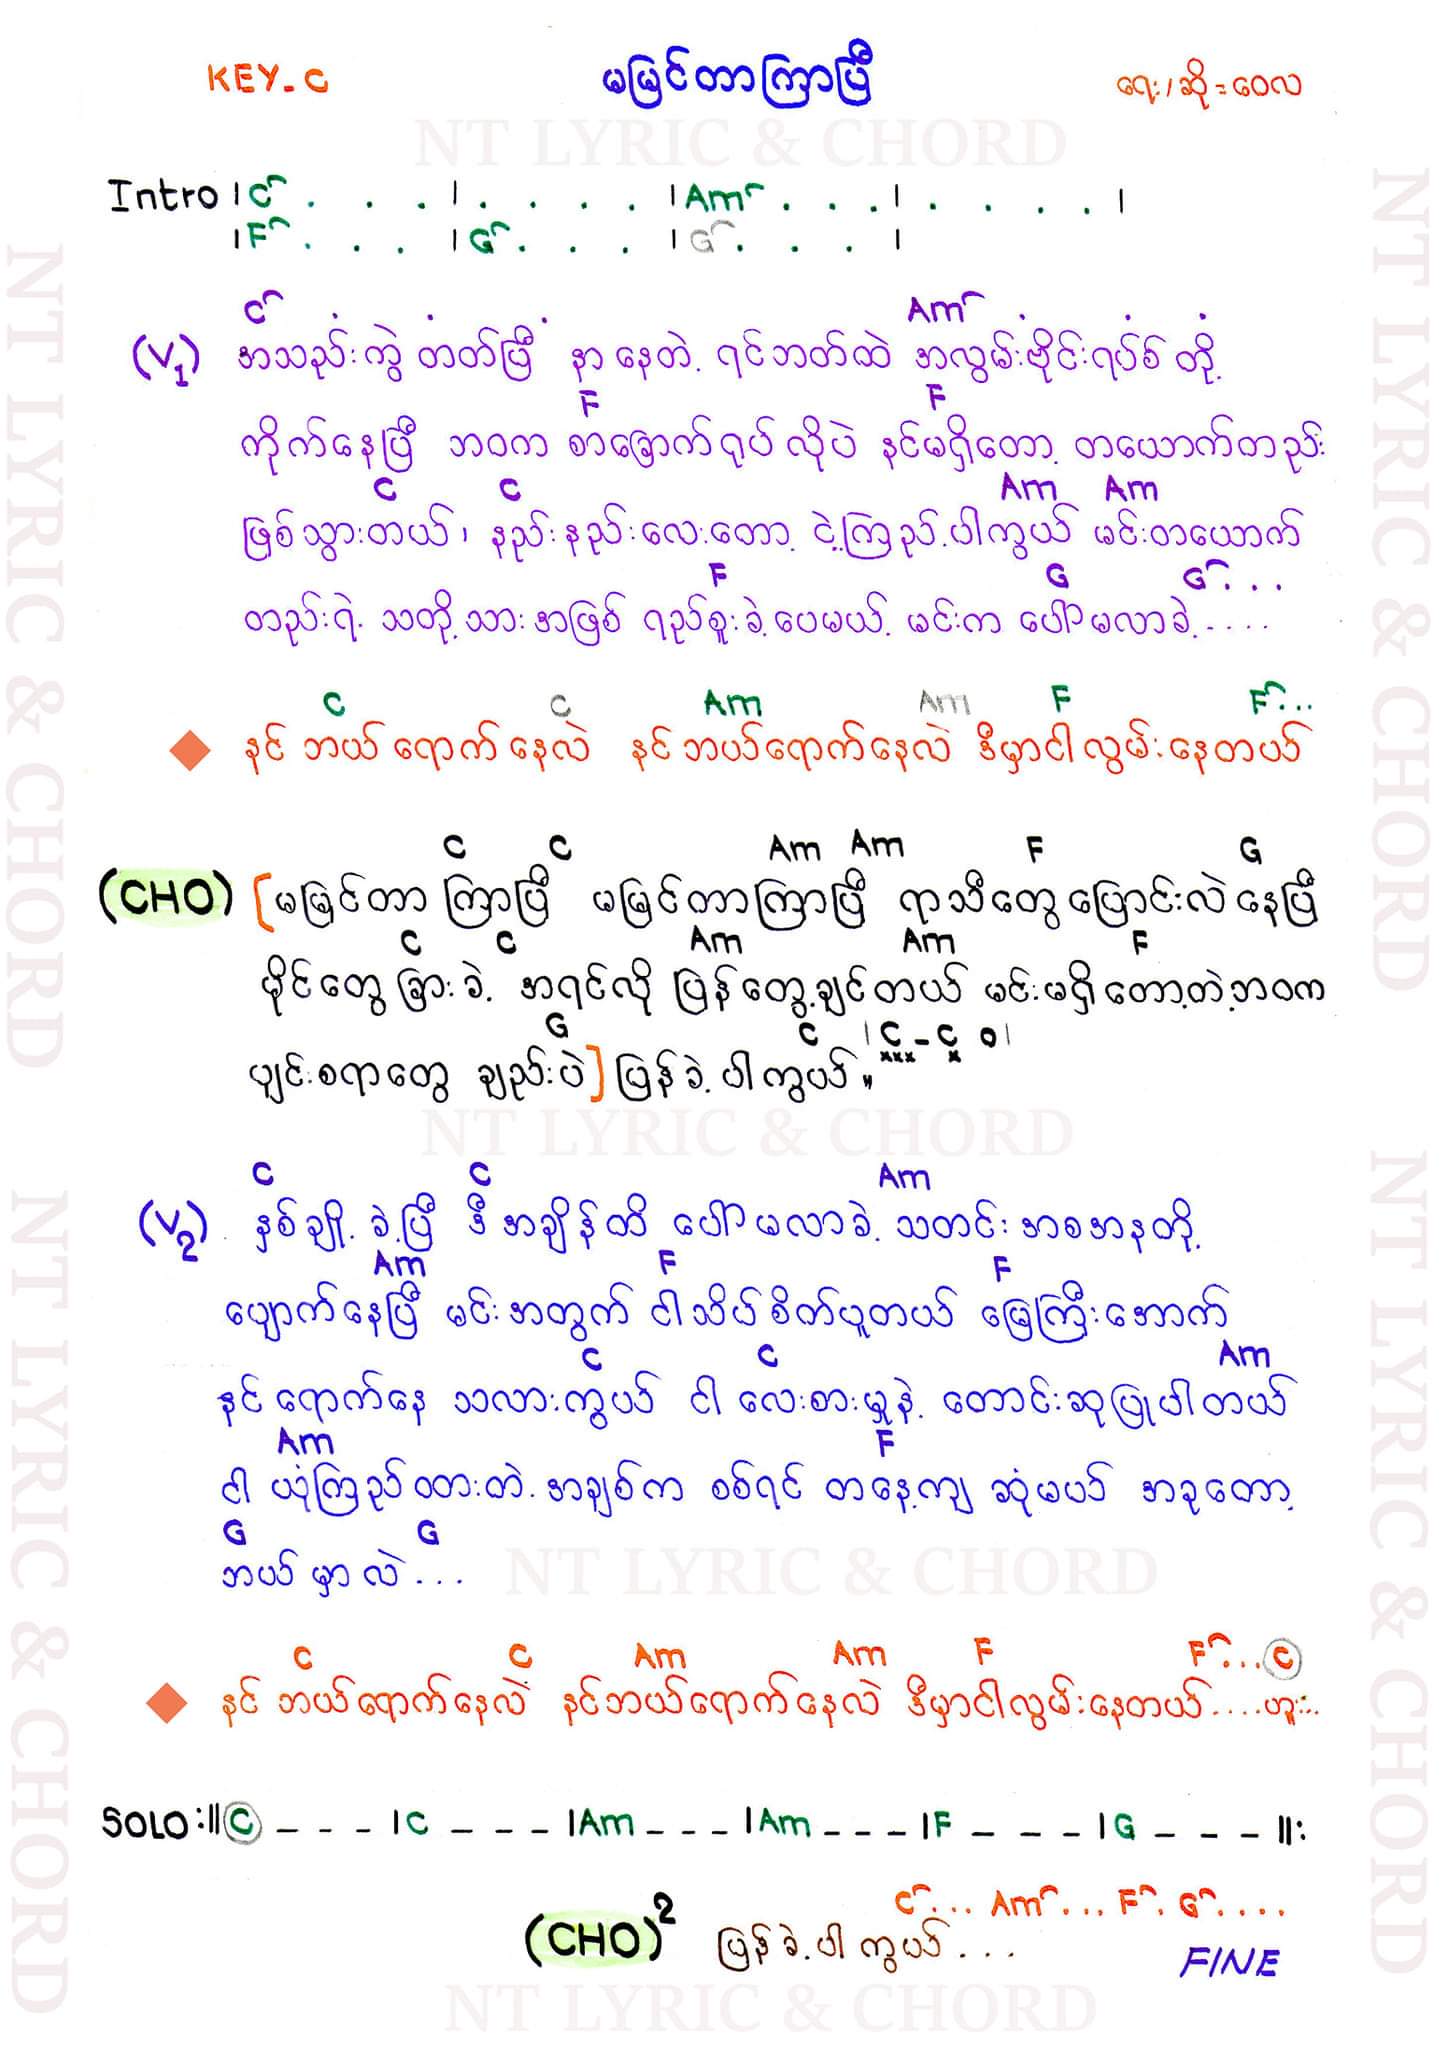 KEY - C မမြင်တာကြာပြီ ရေး/ဆို = ဝေလ
NT LYRIC & CHORD
Intro | C . . . | . . . . | Am . . . | . . . . |
| F . . . | G . . . | G . . . |
C Am
(V1) အသည်းကွဲ တတ်ပြီ နာ နေတဲ့ ရင်ဘတ်ထဲ အလွမ်းဗိုင်းရပ်စ် တို့
F F
ကိုက်နေပြီ ဘဝက စာခြောက်ရုပ် လိုပဲ နင်မရှိတော့ တယောက်တည်း
C C Am Am
ဖြစ်သွားတယ်၊ နည်းနည်းလေးတော့ ငဲ့ကြည့်ပါကွယ် မင်းတယောက်
F G G . . .
တည်းရဲ့ သတို့သားအဖြစ် ရည်စူးခဲ့ပေမယ့် မင်းက ပေါ်မလာခဲ့ . . . .
C C Am Am F F . . .
နင် ဘယ်ရောက်နေလဲ နင်ဘယ်ရောက်နေလဲ ဒီမှာငါလွမ်းနေတယ်
C C Am Am F G
(CHO) [မမြင်တာ ကြာပြီ မမြင်တာကြာပြီ ရာသီတွေပြောင်းလဲနေပြီ
C C Am Am F
မိုင်တွေခြားခဲ့ အရင်လို ပြန်တွေ့ချင်တယ် မင်းမရှိတော့တဲ့ဘဝက
G C | C - C 0 |
xxx x
ပျင်းစရာတွေ ချည်းပဲ] ပြန်ခဲ့ပါကွယ် "
NT LYRIC & CHORD
C C Am
(V2) နှစ်ချို့ခဲ့ပြီ ဒီအချိန်ထိ ပေါ်မလာခဲ့ သတင်းအစအနတို့
Am F F
ပျောက်နေပြီ မင်းအတွက် ငါသိပ်စိတ်ပူတယ် မြေကြီးအောက်
C C Am
နင်ရောက်နေ သလားကွယ် ငါ လေးစားမှုနဲ့ တောင်းဆုပြုပါတယ်
Am F
ငါ ယုံကြည်ဝတားတဲ့ အချစ်က စစ်ရင် တနေ့ကျ ဆုံမယ် အခုတော့
G G
ဘယ်မှာလဲ . . .
NT LYRIC & CHORD
C C Am Am F F . . . C
နင် ဘယ်ရောက်နေလဲ နင်ဘယ်ရောက်နေလဲ ဒီမှာငါလွမ်းနေတယ် . . . . ဟူး . .
SOLO :|| C _ _ _ | C _ _ _ | Am _ _ _ | Am _ _ _ | F _ _ _ | G _ _ _ ||:
C . . . Am . . . F . G . . . .
(CHO)² ပြန်ခဲ့ပါကွယ် . . .
FINE
NT LYRIC & CHORD
NT LYRIC & CHORD
NT LYRIC & CHORD
NT LYRIC & CHORD
NT LYRIC & CHORD